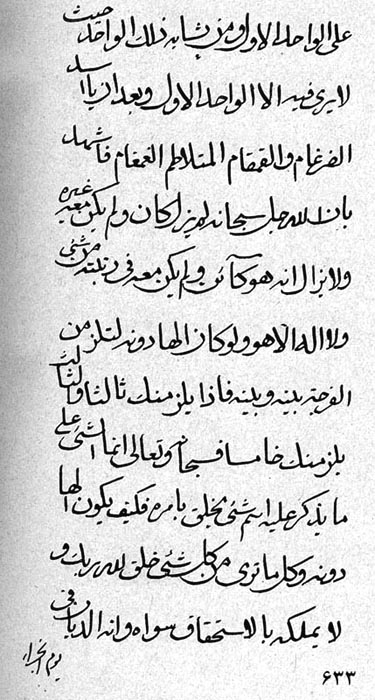 على الواحد الاول ومن يشابه ذلك الواحد حيث
لا يرى فيه الا الواحد الاول وبعد ان يا اسد
الفرغام والقمقام المتلاطم الغمقام فاشهد
بان الله جل سبحانه لم يزل كان ولم يكن معه غيره
ولا يزال انه هو كآئن ولم يكن معه فى رتبته من شئى
ولا اله الا هو ولو كان الها دونه لتلزمن
الفرجة بينه وبينه فاذا يلزمنك ثالثا والثالث
يلزمنك خامسا فسبحانه وتعالى انما الشئى على
ما يذكر عليه اسم شئى يخلق بامره فكيف يكون الها
دونه وكل ما ترى من كل شئى خلق لله ربك و
لا يملكه بالاستحقاق سواه وانه الديان فى
يوم الجزاء
۶۳۳